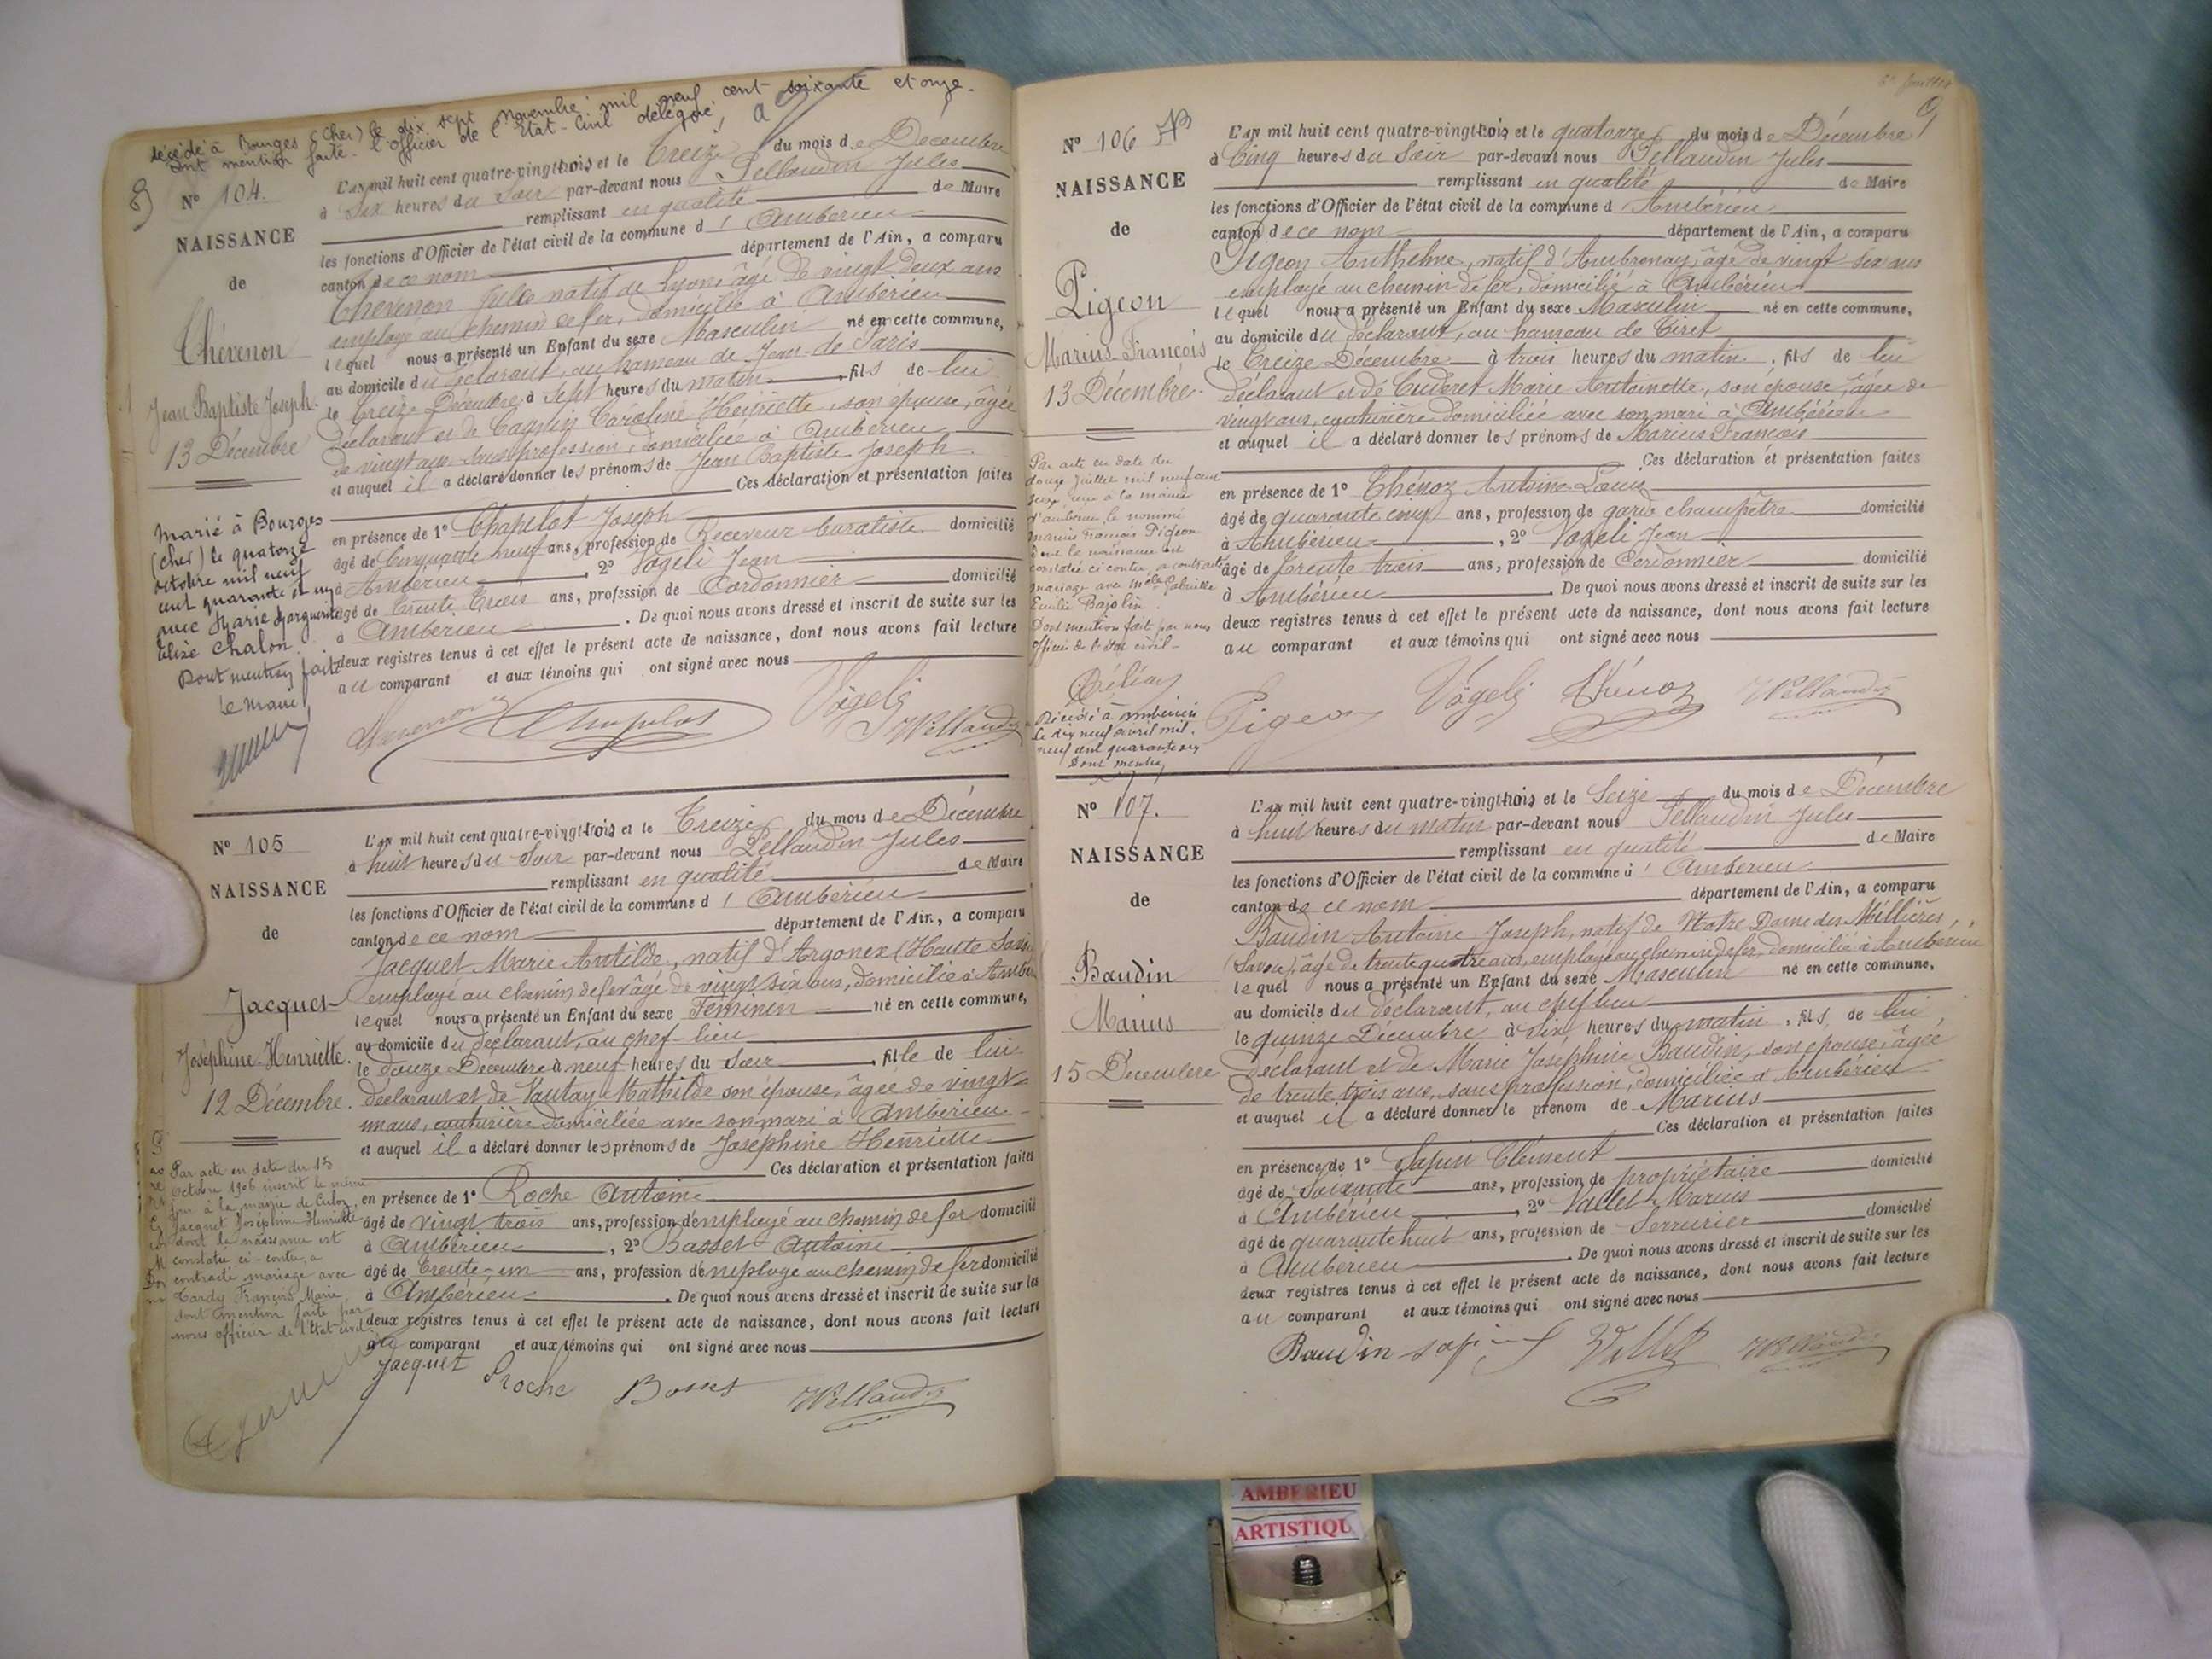 décédé à Bourges (Cher) le dix sept Novembre mil neuf cent soixante et onze.
dont mention faite. l'officier de l'Etat-Civil délégué,
8
N° 104.
NAISSANCE
de
Chévenon
Jean Baptiste Joseph.
13 Décembre
L'an mil huit cent quatre-vingt-trois et le Treize du mois de Décembre
à Six heures du Soir par-devant nous Pellaudin Jules
remplissant en qualité de Maire
les fonctions d'Officier de l'état civil de la commune d'Ambérieu
canton de ce nom département de l'Ain, a comparu
Chévenon Jules natif de Lyon âgé de vingt deux ans
employé au chemin de fer, domicilié à Ambérieu
lequel nous a présenté un Enfant du sexe Masculin né en cette commune,
au domicile du déclarant, au hameau de Jean-de Paris
le Treize Décembre à Sept heures du matin fils de lui
déclarant et de Caroline Henriette, son épouse, âgée
de vingt ans sans profession, domiciliée à Ambérieu
et auquel il a déclaré donner les prénoms de Jean Baptiste Joseph.
Ces déclaration et présentation faites
en présence de 1° Chapelot Joseph
âgé de Cinquante neuf ans, profession de Receveur buraliste domicilié
à Ambérieu, 2° Vögeli Jean
âgé de Trente Trois ans, profession de Cordonnier domicilié
à Ambérieu. De quoi nous avons dressé et inscrit de suite sur les
deux registres tenus à cet effet le présent acte de naissance, dont nous avons fait lecture
au comparant et aux témoins qui ont signé avec nous
Marié à Bourges
(Cher) le quatorze
octobre mil neuf
cent quarante et un
avec Marie Marguerite
Elise Chalon.
Dont mention faite
Le Maire
Chapelot Vögeli JPellaudin
N° 105
NAISSANCE
de
Jacquet
Joséphine Henriette.
12 Décembre.
L'an mil huit cent quatre-vingt-trois et le Treize du mois de Décembre
à huit heures du Soir par-devant nous Pellaudin Jules
remplissant en qualité de Maire
les fonctions d'Officier de l'état civil de la commune d'Ambérieu
canton de ce nom département de l'Ain, a comparu
Jacquet Marie Antilde, natif d'Argonex (Haute Savoie
employé au chemin de fer âgé de vingt six ans, domicilié à Ambé
lequel nous a présenté un Enfant du sexe Féminin né en cette commune,
au domicile du déclarant, au chef-lieu
le douze Décembre à neuf heures du Soir fille de lui
déclarant et de Vautay Mathilde son épouse, âgée de vingt
un ans, couturière domiciliée avec son mari à Ambérieu
et auquel il a déclaré donner les prénoms de Joséphine Henriette
Ces déclaration et présentation faites
en présence de 1° Roche Antoine
âgé de vingt trois ans, profession d'employé au chemin de fer domicilié
à Ambérieu, 2° Basset Antoine
âgé de Trente-un ans, profession d'employé au chemin de fer domicilié
à Ambérieu. De quoi nous avons dressé et inscrit de suite sur les
deux registres tenus à cet effet le présent acte de naissance, dont nous avons fait lecture
au comparant et aux témoins qui ont signé avec nous
Par acte en date du 13
Octobre 1906 inscrit le même
jour à la mairie de Culoz,
Jacquet Joséphine Henriette
dont la naissance est
constatée ci-contre, a
contracté mariage avec
Tardy François Marie,
dont mention faite par
nous officier de l'Etat civil.
Jacquet Roche Basset JPellaudin
9
N° 106
NAISSANCE
de
Pigeon
Marius François
13 Décembre.
L'an mil huit cent quatre-vingt-trois et le quatorze du mois de Décembre
à Cinq heures du Soir par-devant nous Pellaudin Jules
remplissant en qualité de Maire
les fonctions d'Officier de l'état civil de la commune d'Ambérieu
canton de ce nom département de l'Ain, a comparu
Pigeon Anthelme, natif d'Ambronay, âgé de vingt six ans
employé au chemin de fer, domicilié à Ambérieu
lequel nous a présenté un Enfant du sexe Masculin né en cette commune,
au domicile du déclarant, au hameau de Tiret
le Treize Décembre à trois heures du matin, fils de lui
déclarant et de Marie Antoinette, son épouse, âgée de
vingt ans, couturière domiciliée avec son mari à Ambérieu
et auquel il a déclaré donner les prénoms de Marius François
Ces déclaration et présentation faites
en présence de 1° Thénoz Antoine Louis
âgé de quarante cinq ans, profession de garde champêtre domicilié
à Ambérieu, 2° Vögeli Jean
âgé de trente trois ans, profession de Cordonnier domicilié
à Ambérieu. De quoi nous avons dressé et inscrit de suite sur les
deux registres tenus à cet effet le présent acte de naissance, dont nous avons fait lecture
au comparant et aux témoins qui ont signé avec nous
Par acte en date du
douze Juillet mil neuf cent
seize reçu à la mairie
d'Ambérieu le nommé
Marius François Pigeon
dont la naissance est
constatée ci contre, a contracté
mariage avec Melle Gabrielle
Emilie Bajolin.
Dont mention fait par nous
officier de l'état civil
Décédé à Ambérieu
le dix neuf avril mil
neuf cent quarante six
Dont mention
Pigeon Vögeli Thénoz JPellaudin
N° 107.
NAISSANCE
de
Baudin
Marius
15 Décembre
L'an mil huit cent quatre-vingt-trois et le Seize du mois de Décembre
à huit heures du matin par-devant nous Pellaudin Jules
remplissant en qualité de Maire
les fonctions d'Officier de l'état civil de la commune d'Ambérieu
canton de ce nom département de l'Ain, a comparu
Baudin Antoine Joseph, natif de Notre Dame des Millières,
(Savoie), âgé de trente quatre ans, employé au chemin de fer, domicilié à Ambérieu
lequel nous a présenté un Enfant du sexe Masculin né en cette commune,
au domicile du déclarant, au chef lieu
le quinze Décembre à dix heures du matin, fils de lui,
déclarant et de Marie Joséphine Baudin, son épouse, âgée
de trente trois ans, sans profession, domiciliée à Ambérieu
et auquel il a déclaré donner le prénom de Marius
Ces déclaration et présentation faites
en présence de 1° Sapin Clément
âgé de Soixante ans, profession de propriétaire domicilié
à Ambérieu, 2° Vallet Marius
âgé de quarante huit ans, profession de Serrurier domicilié
à Ambérieu. De quoi nous avons dressé et inscrit de suite sur les
deux registres tenus à cet effet le présent acte de naissance, dont nous avons fait lecture
au comparant et aux témoins qui ont signé avec nous
Baudin Sapin Vallet JPellaudin
AMBERIEU
ARTISTIQU